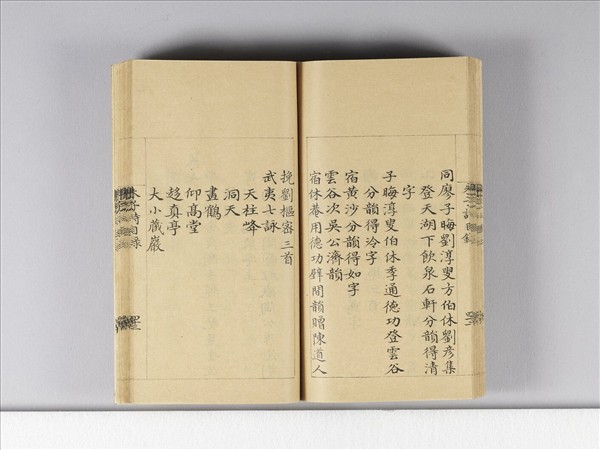 同廖子晦劉淳叟方伯休劉彥集
登天湖下飲泉石軒分韻得清
字
子晦淳叟伯休季通德功登雲谷
分韻得泠字
宿黄沙分韻得如字
雲谷次吳公濟韻
宿休菴用德功壁間韻贈陳道人
挽劉樞密三首
武夷七詠
天柱峰
洞天
畫鶴
仰髙堂
趍真亭
大小藏巖